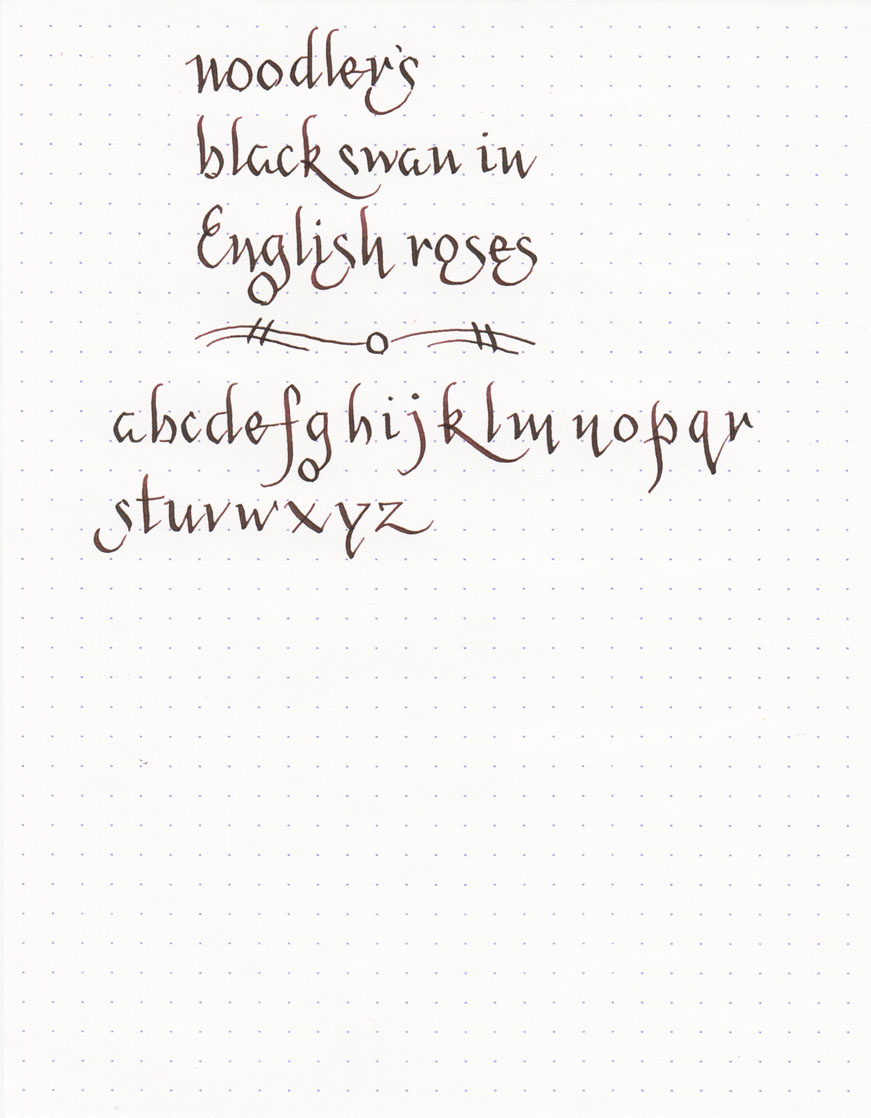 noodler's
black swan in
English roses
abcdefghijklmnopqr
stuvwxyz